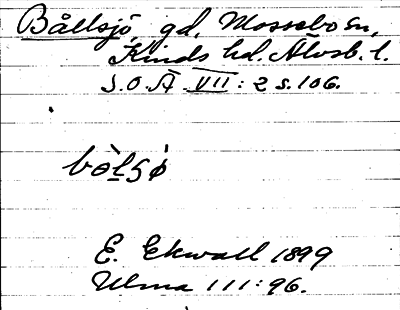 Bållsjö, gd, Mossebo sn,
Kinds hd. Älvsb. l.
S.O.Ä VII: 2 s. 106.
E. Ekwall 1899
Ulma 111:96.